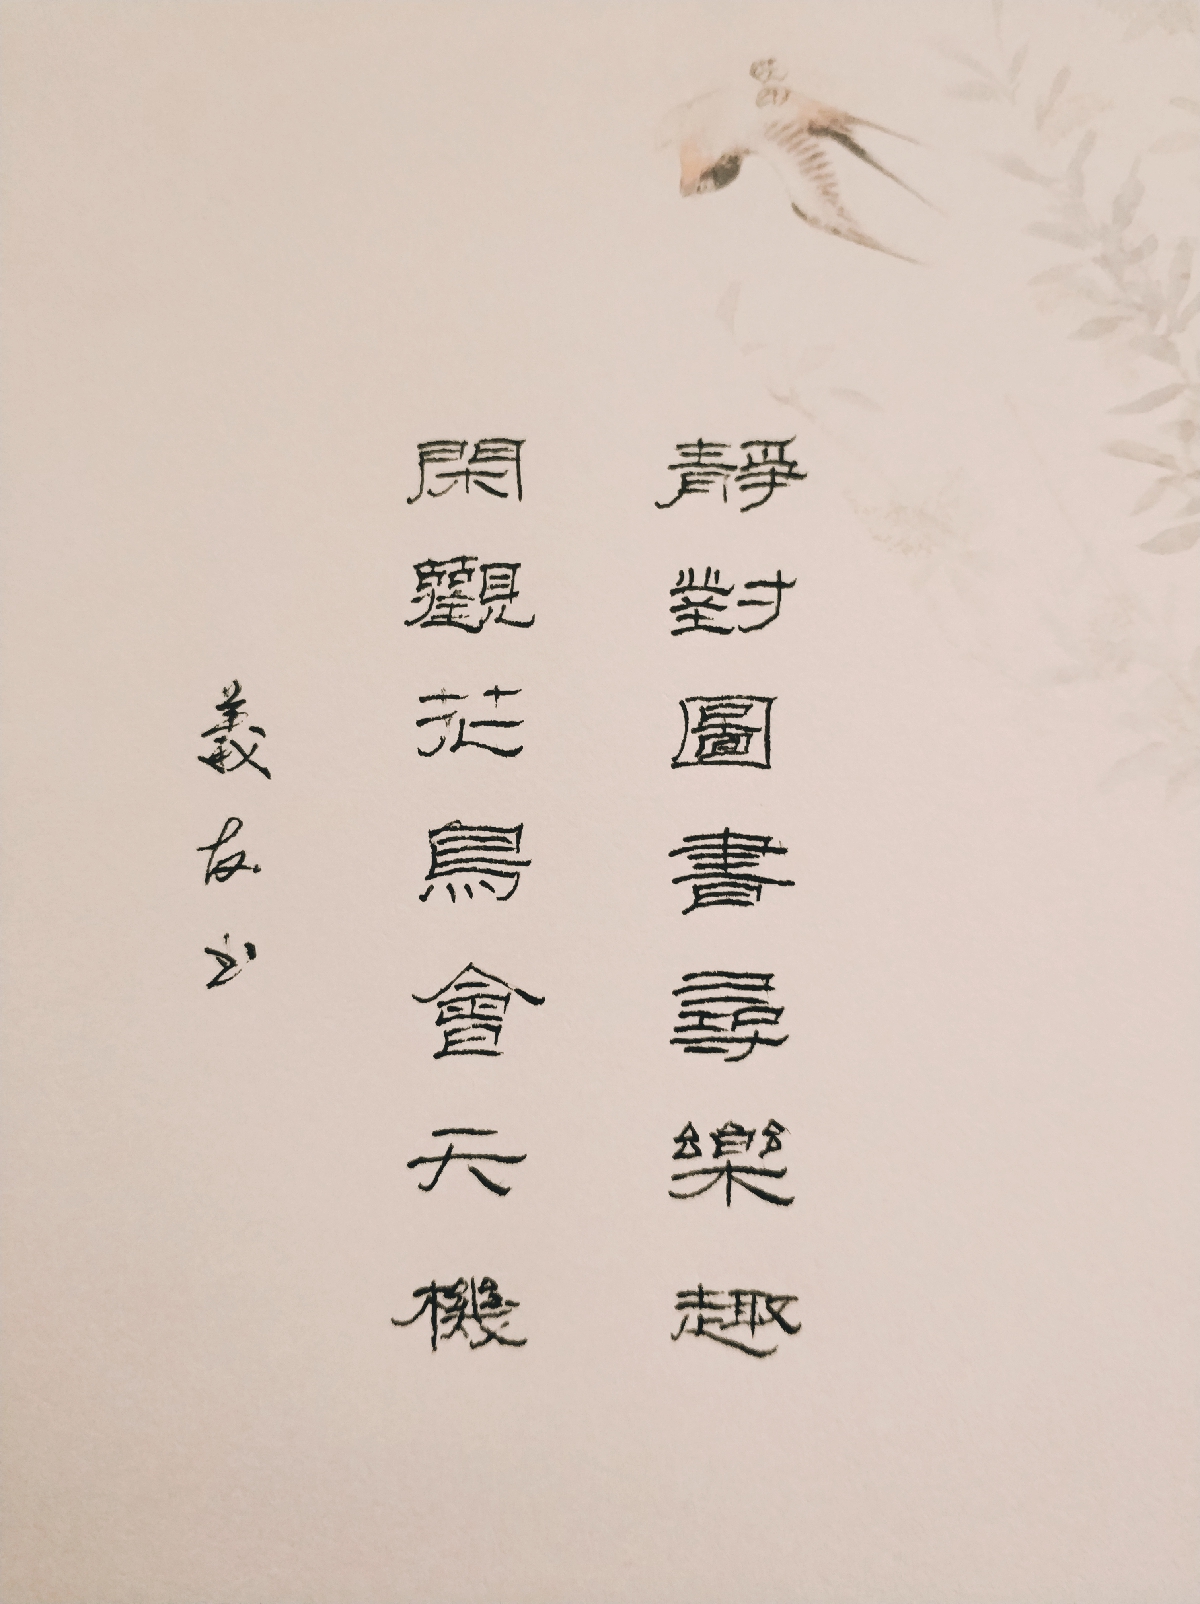 靜對圖書尋樂趣
閑觀花鳥會天機
義友书